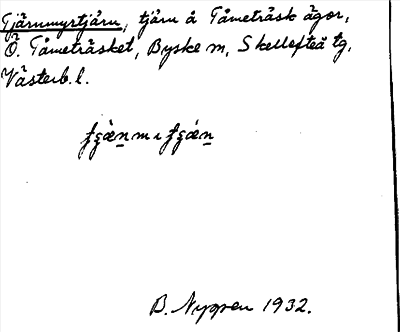 Tjärnmyrtjärn, tjärn å Tåmeträsk ägor,
Ö. Tåmeträsket, Byske m, Skellefteå tg.
Västerb. l.
B. Nygren 1932.